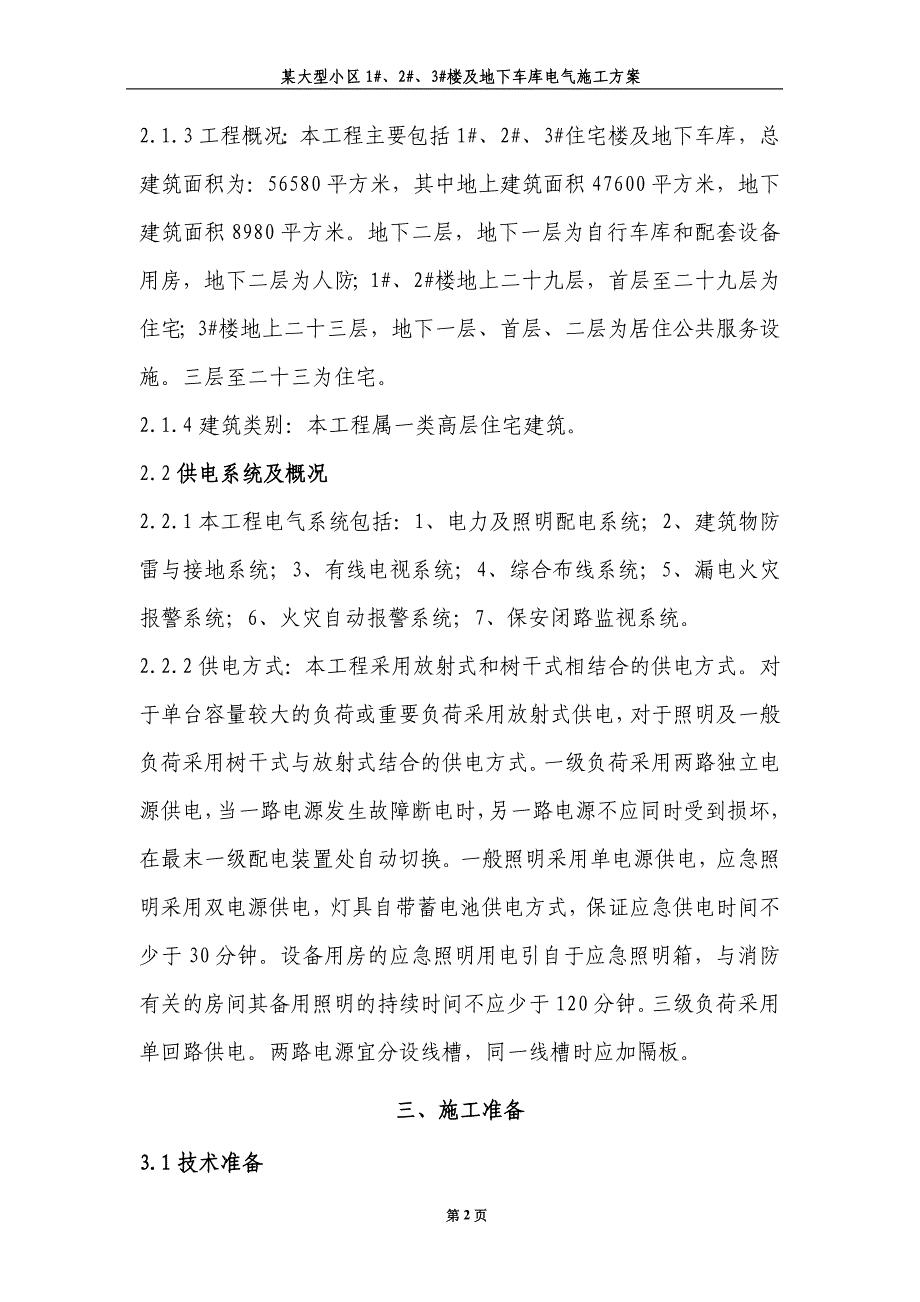 某大型小区 1#、2#、3#楼及地下车库电气施工方案
2.1.3 工程概况：本工程主要包括 1#、2#、3#住宅楼及地下车库，总
建筑面积为：56580 平方米，其中地上建筑面积 47600 平方米，地下
建筑面积 8980 平方米。地下二层，地下一层为自行车库和配套设备
用房，地下二层为人防；1#、2#楼地上二十九层，首层至二十九层为
住宅；3#楼地上二十三层，地下一层、首层、二层为居住公共服务设
施。三层至二十三为住宅。
2.1.4 建筑类别：本工程属一类高层住宅建筑。
2.2 供电系统及概况
2.2.1 本工程电气系统包括：1、电力及照明配电系统；2、建筑物防
雷与接地系统；3、有线电视系统；4、综合布线系统；5、漏电火灾
报警系统；6、火灾自动报警系统；7、保安闭路监视系统。
2.2.2 供电方式：本工程采用放射式和树干式相结合的供电方式。对
于单台容量较大的负荷或重要负荷采用放射式供电，对于照明及一般
负荷采用树干式与放射式结合的供电方式。一级负荷采用两路独立电
源供电，当一路电源发生故障断电时，另一路电源不应同时受到损坏，
在最末一级配电装置处自动切换。一般照明采用单电源供电，应急照
明采用双电源供电，灯具自带蓄电池供电方式，保证应急供电时间不
少于 30 分钟。设备用房的应急照明用电引自于应急照明箱，与消防
有关的房间其备用照明的持续时间不应少于 120 分钟。三级负荷采用
单回路供电。两路电源宜分设线槽，同一线槽时应加隔板。
三、施工准备
3.1 技术准备
第 2 页